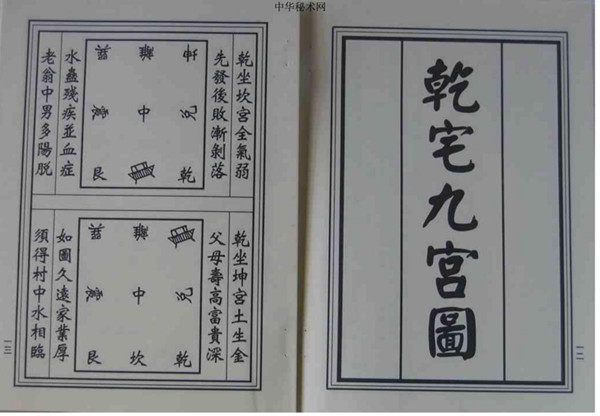 中华秘术网
乾宅九宮圖
一二
乾坐坎宮全氣弱
先發後敗漸剝落
巽 離 坤
震 中 兌
艮 乾
水蠱殘疾並血症
老翁中男多陽脫
乾坐坤宮土生金
父母壽高富貴深
巽 離
震 中 兌
艮 坎 乾
如圖久遠家業厚
須得村中水相臨
一三